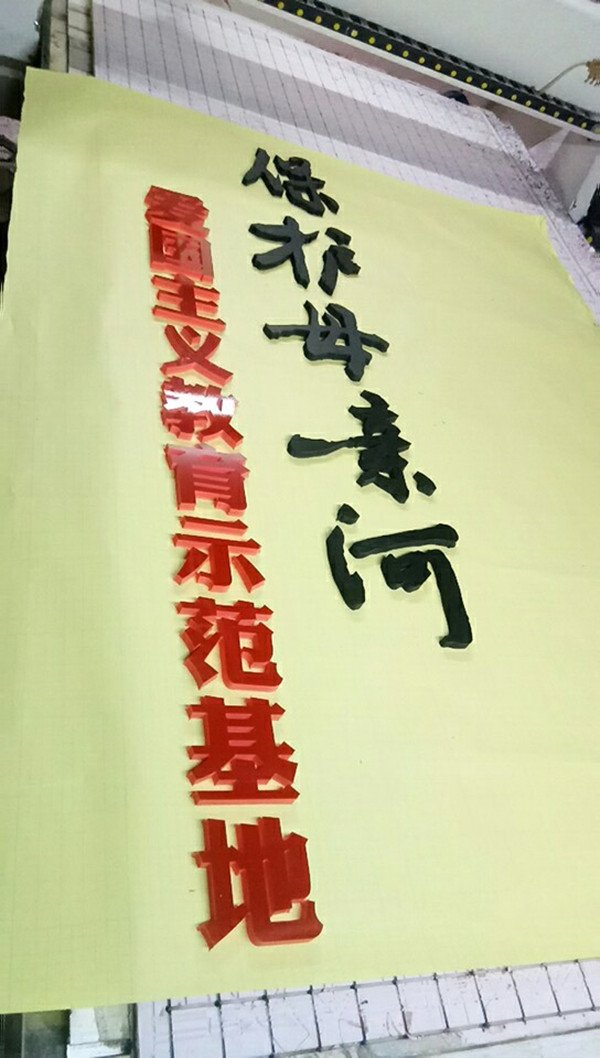 保护母亲河
爱国主义教育示范基地